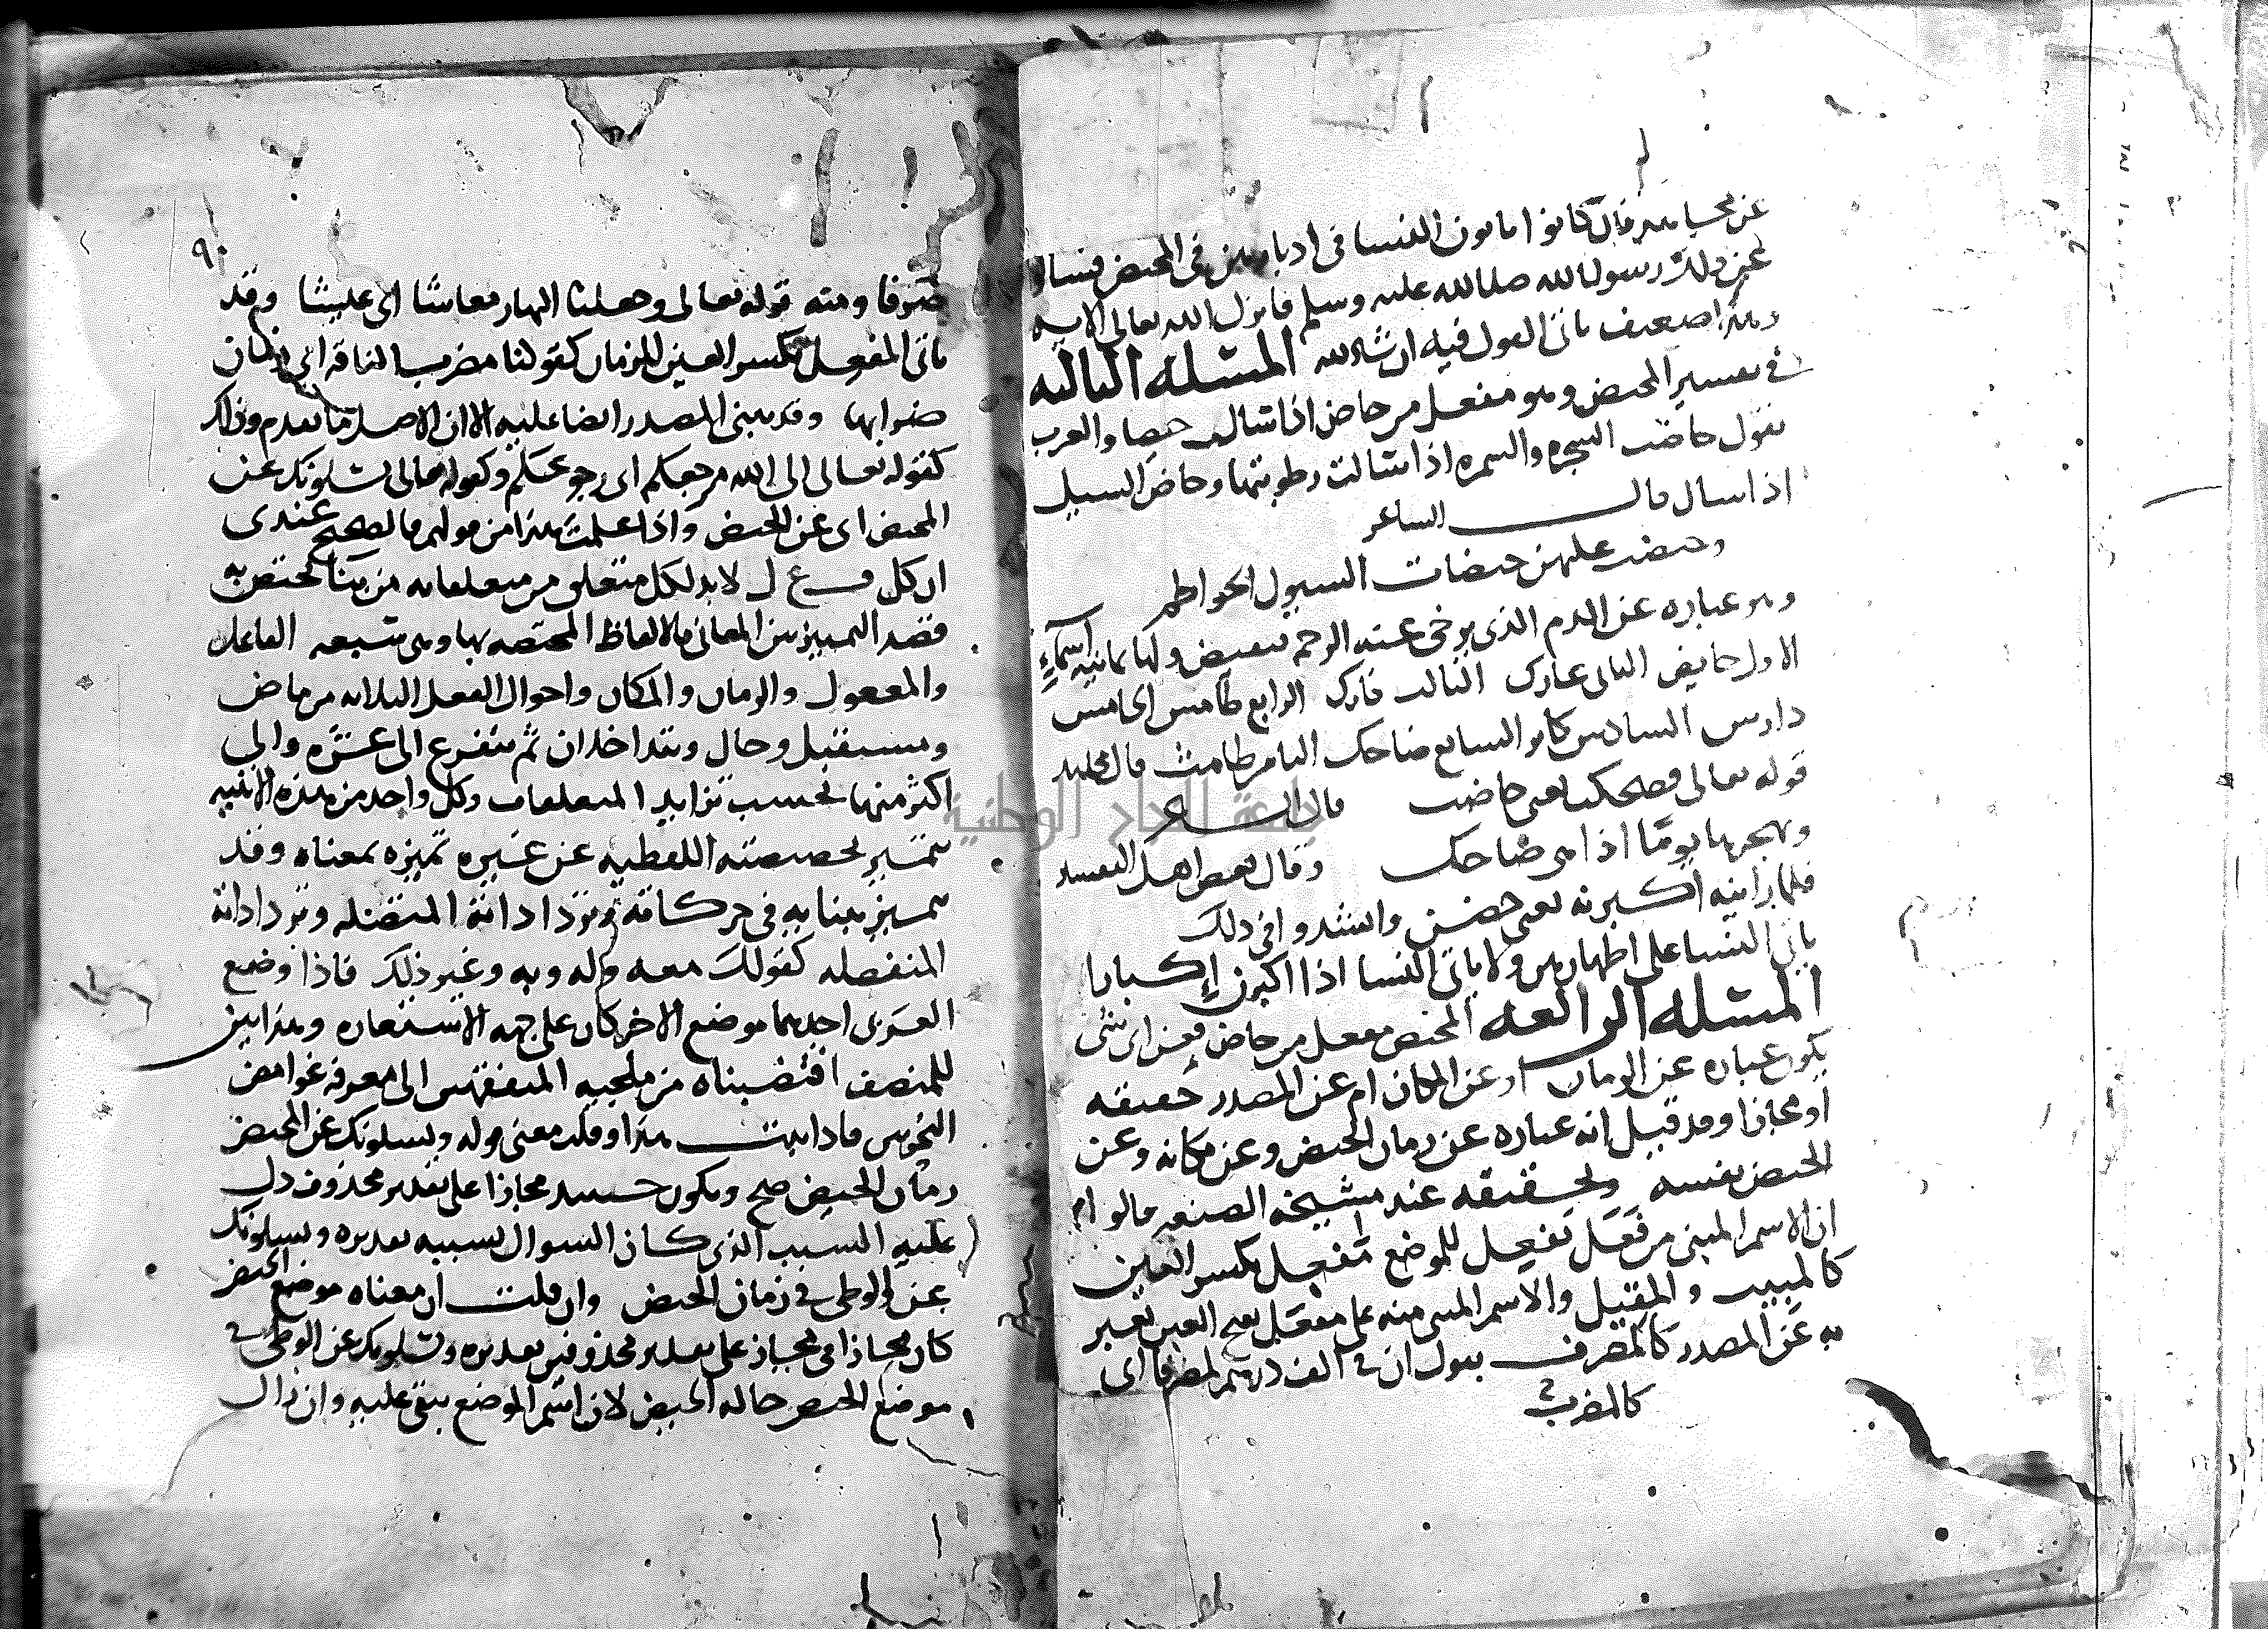 عن مجاهد قال كانوا ياتون النسا في ادبارهن في المحيض فسالوا
عن ذلك رسول الله صلى الله عليه وسلم فانزل الله تعالى الايه
وهذا ضعيف ياتى القول فيه ان شاء الله المسئلة الثالثه
في تفسير المحيض وهو مفعل من حاض اذا سال حيضا والعرب
تقول حاضت الشجره والسمره اذا سالت رطوبتها وحاض السيل
اذا سال قال الشاعر
وحيضت عليهن حيضات السيول الطواحم
وهو عباره عن الدم الذي يرخى عنه الرحم فيفيض ولها ثمانيه اسماء
الاول حايض الثاني عارك الثالث فارك الرابع طامس الخامس
دارس السادس كابر السابع ضاحك الثامن طامث قال مجاهد
قوله تعالى فضحكت يعنى حاضت قال الشاعر
ويهجرها يوما اذا هي ضاحك وقال بعض اهل التفسير
فلما راينه اكبرنه يعنى حضن وانشدوا في ذلك
ياتى النسا على اطهارهن ولا ياتى النسا اذا اكبرن إكبارا
المسئلة الرابعه المحيض مفعل من حاض فعن اى شى
يكون عباره عن الزمان او عن المكان ام عن المصدر حقيقه
او مجازا وقد قيل انه عباره عن زمان الحيض وعن مكانه وعن
الحيض نفسه وتحقيقه عند مشيخه الصنعه قالوا
ان الاسم المبنى من فَعَل يَفعِل للموضع مَفعِل بكسر العين
كالمبيت والمقيل والاسم المبنى منه على مفعَل بفتح العين يعبر
به عن المصدر كالمضرف بقول ان في الف درهم لمضرفا اى
كالمضرب
٩٠
ضرفا ومنه قوله تعالى وجعلنا النهار معاشا اى عليشا وقد
ياتى المفعِل بكسر العين للزمان كقولنا مضرب الناقه اى زمان
ضرابها وقد يبنى المصدر ايضا عليه الا ان الاصل ما تقدم وذلك
كقوله تعالى الى الله مرجعكم اى رجوعكم وكقوله تعالى يسئلونك عن
المحيض اى عن الحيض واذا علمت هذا من قولهم فالصحيح عندى
ان كل ف ع ل لا بد لكل متعلق من متعلقاته من بنآ يختص به
قصد التمييز بين المعاني بالالفاظ المختصه بها وهى سبعه الفاعل
والمفعول والزمان والمكان واحوال الفعل الثلاثه من ماض
ومستقبل وحال ويتداخلان ثم يتفرع الى عشره والى
اكثر منها بحسب تزايد المتعلقات وكل واحد من هذه الابنيه
يتميز بخصيصته اللفظيه عن غيره تميزه بمعناه وقد
يتميز ببنايه في حركاته وتردادانه المتصله وتردادانه
المنفصله كقولك معه وله وبه وغير ذلك فاذا وضع
العربى احدهما موضع الاخر كان على جهه الاستعاره وهذا بين
للمنصف اقتضبناه من ملجيه المتفقهين الى معرفه غوامض
النحويين فاذا ثبت هذا وقلت معنى قوله ويسلونك عن المحيض
زمان الحيض صح ويكون حينيد مجازا على تقدير محذوف دل
عليه السبب الذي كان السوال بسببه تقديره ويسلونك
عن الوطى في زمان الحيض وان قلت ان معناه موضع الحيض
كان مجازا في مجاز على تقدير محذوفين تقديره ويسلونك عن الوطى في
موضع الحيض حاله الحيض لان اسم الموضع يبقى عليه وان زال
جامعة النجاح الوطنية